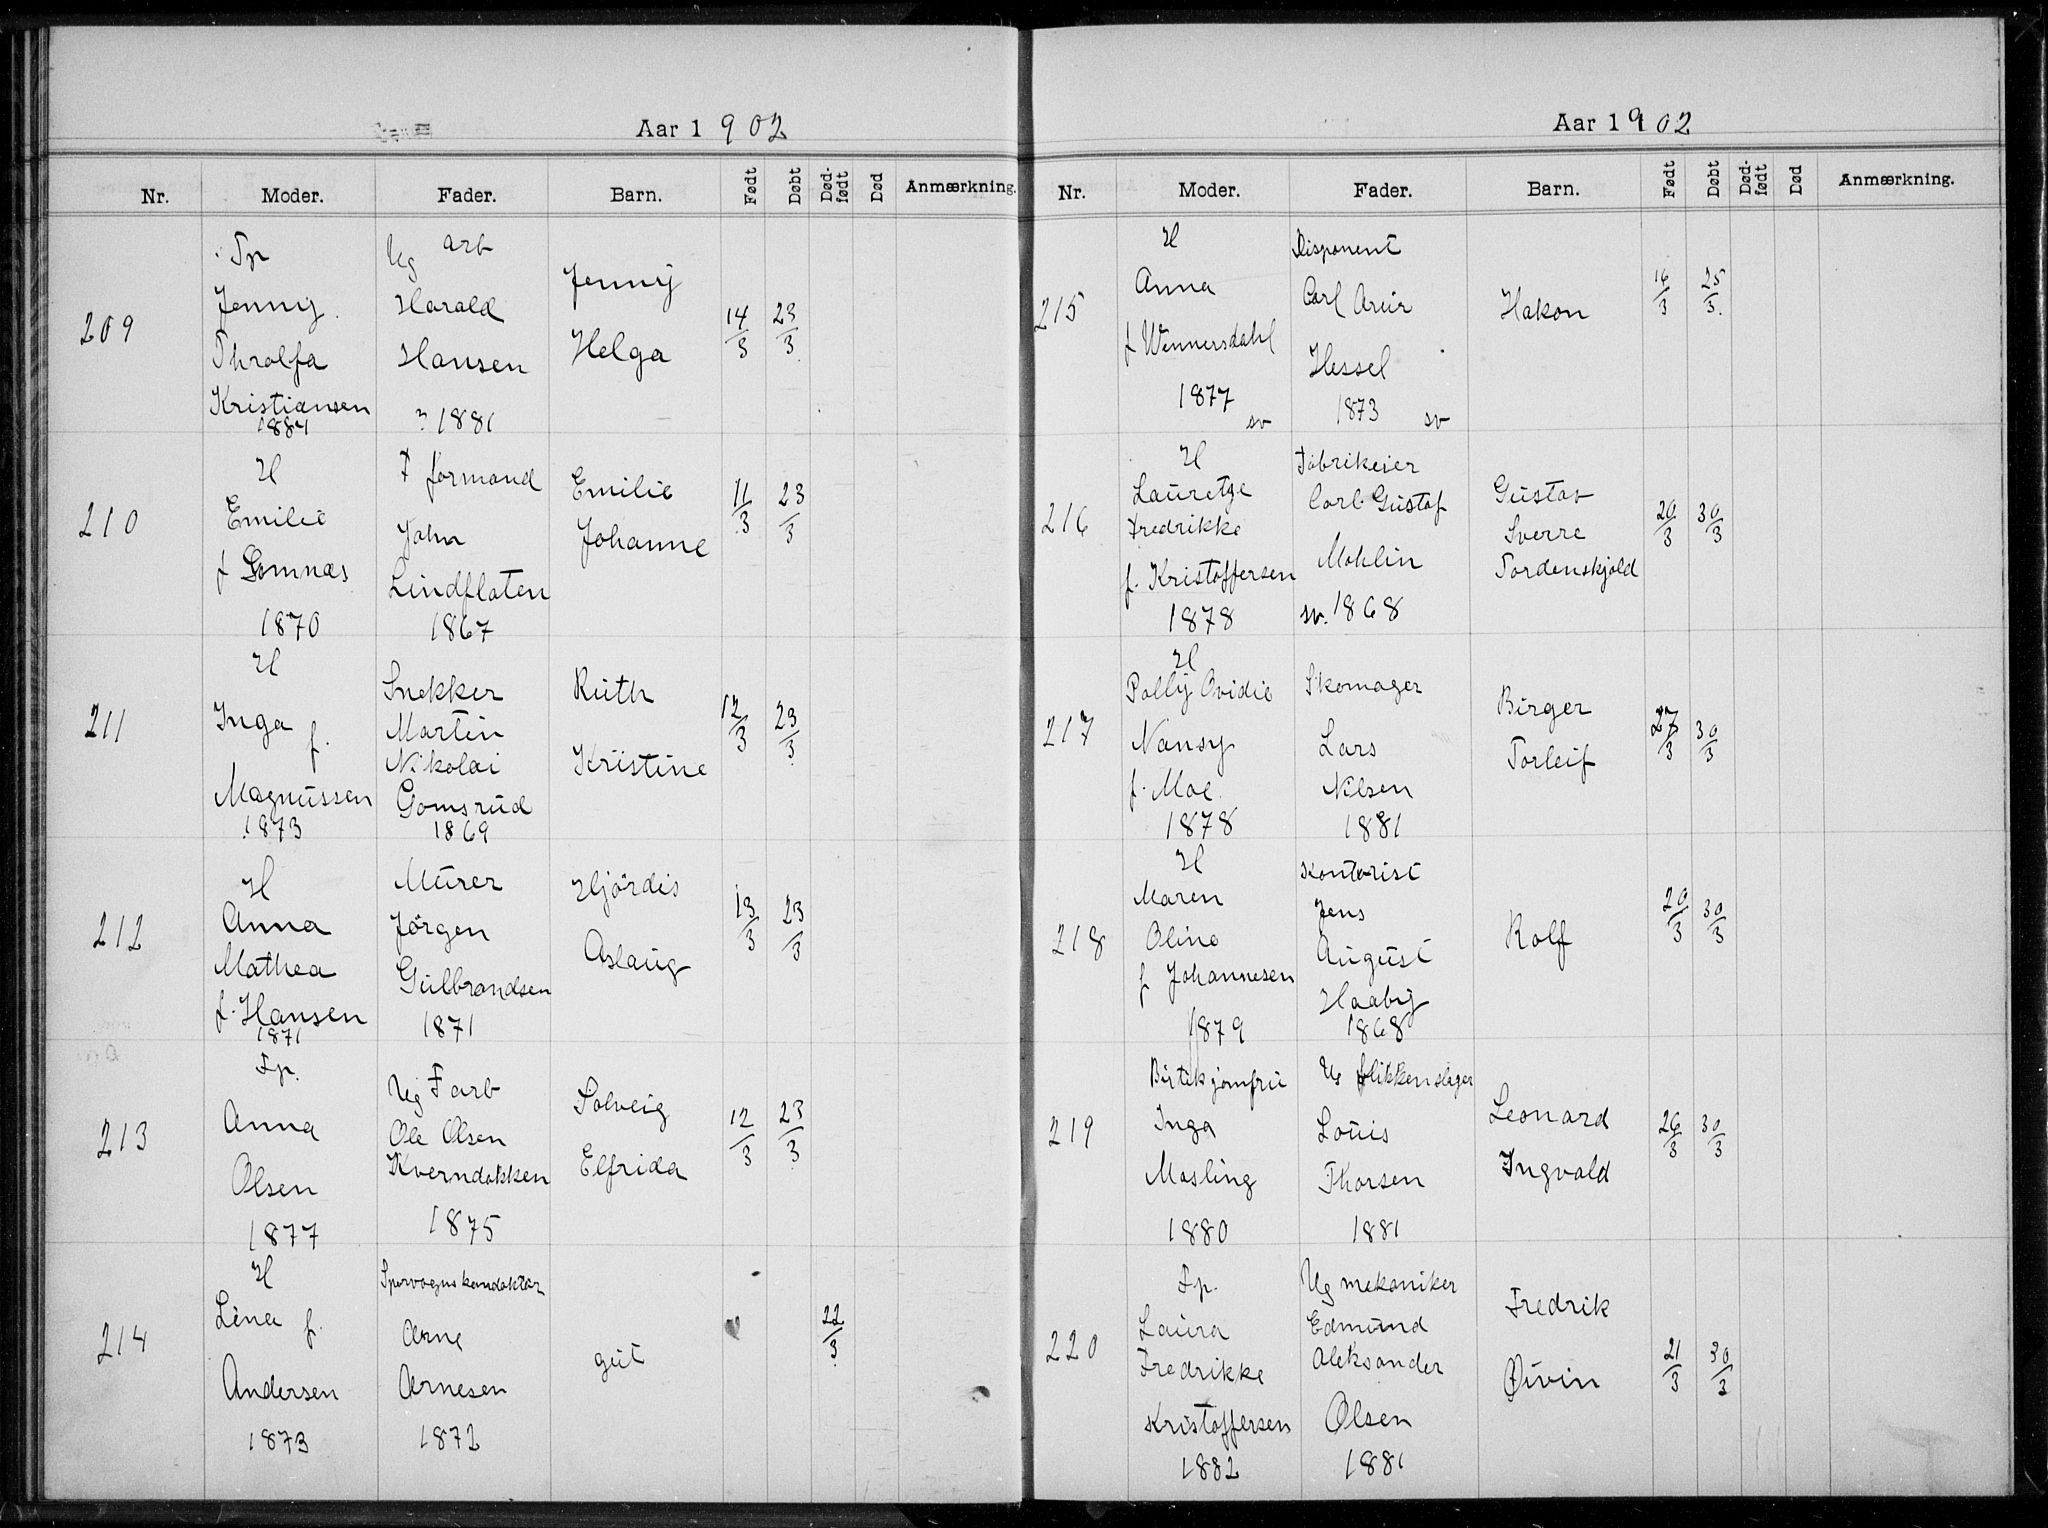 Aar 1902
Nr. Moder. Fader. Barn. Født Døbt Død-født Død Anmærkning.
209
Tp
Jenny
Thralfa
Kristiansen
1884
Ug arb
Harald
Hansen
? 1881
Jenny
Helga
14/3 23/3
210
H
Emilie
f Somnæs
1870
F formand
John
Lindfloten
1867
Emilie
Johanne
11/3 23/3
211
H
Inga f.
Magnussen
1873
Snekker
Martin
Nikolai
Gomsrud
1869
Ruth
Kristine
12/3 23/3
212
H
Anna
Mathea
f. Hansen
1871
Murer
Jörgen
Gulbrandsen
1871
Hjördis
Aslaug
13/3 23/3
213
Fp.
Anna
Olsen
1877
Ug Farb
Ole Olsen
Kverndokken
1875
Solveig
Elfrida
12/3 23/3
214
H
Lina f.
Andersen
1873
Sporvognskonduktör
Arne
Arnesen
1872
gut
22/3
Aar 1902
Nr. Moder. Fader. Barn. Født Døbt Død-født Død Anmærkning.
215
H
Anna
f Wennersdahl
1877
sv
Disponent
Carl
Hessel
1873 sv
Hakon
16/3 25/3
216
H
Lauretze
Fredrikke
f. Kristoffersen
1878
Fabrikeier
Carl Gustaf
Mohlin
sv. 1868
Gustav
Sverre
Tordenskjold
20/3 30/3
217
H
Polly Ovidie
Nansy
f. Moe
1878
Skomager
Lars
Nilsen
1881
Birger
Torleif
27/3 30/3
218
H
Maren
Oline
f Johannesen
1879
Kontorist
Jens
August
Haaby
1868
Rolf
20/3 30/3
219
Butikjomfru
Inga
Mosling
1880
Ug blikkenslager
Louis
Thorsen
1881
Leonard
Ingvald
26/3 30/3
220
Fp.
Laura
Fredrikke
Kristoffersen
1882
Ug mekaniker
Edmund
Aleksander
Olsen
1881
Fredrik
Øivin
21/3 30/3